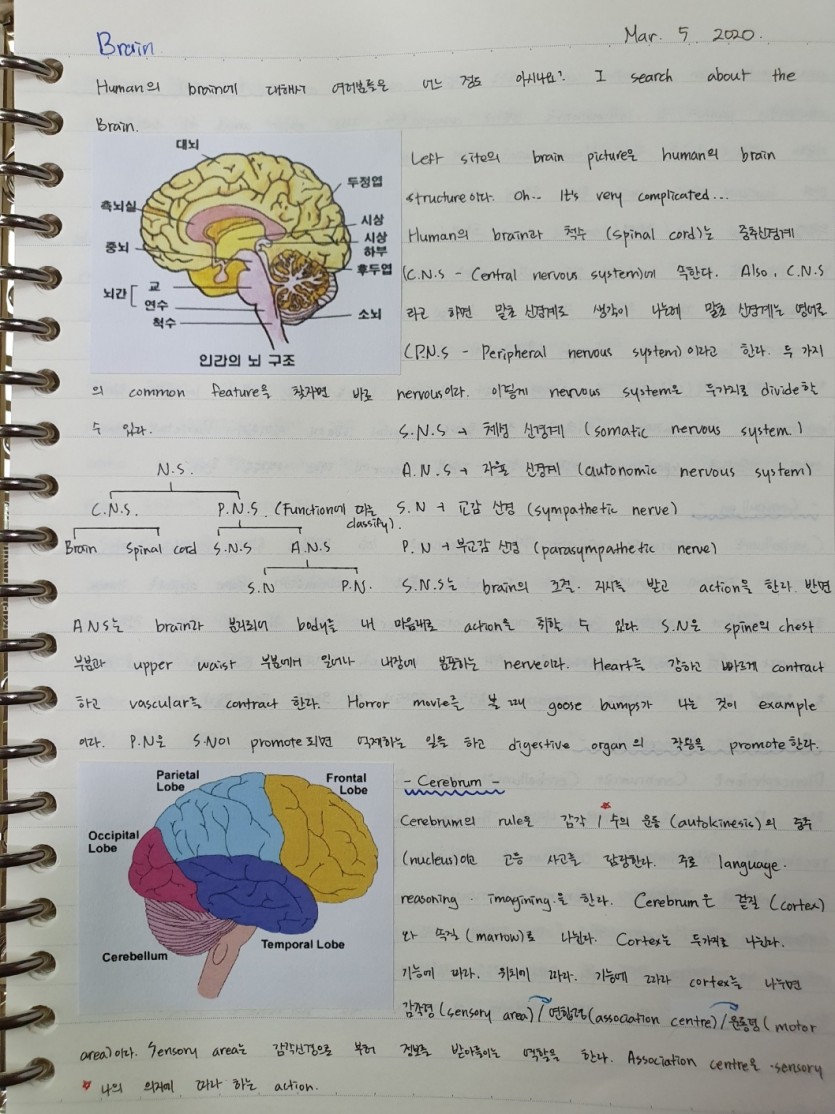 Brain.
Mar. 5. 2020.
Human의 brain에 대해서 여러분들은 어느 정도 아시나요? I search about the
Brain.
대뇌
두정엽
측뇌실
시상
시상
하부
중뇌
후두엽
뇌간
교
연수
척수
소뇌
인간의 뇌 구조
Left site의 brain picture은 human의 brain
structure이다. Oh.. It's very complicated...
Human의 brain과 척수 (spinal cord)는 중추신경계
(C.N.S - Central nervous system)에 속한다. Also, C.N.S
라고 하면 말초 신경계도 생각이 나는데 말초 신경계는 영어로
(P.N.S - Peripheral nervous system) 이라고 한다. 두 가지
의 common feature을 찾자면 바로 nervous이다. 이렇게 nervous system은 두가지로 divide할
수 있다.
S.N.S → 체성 신경계 (somatic nervous system.)
N.S.
A.N.S → 자율 신경계 (autonomic nervous system)
C.N.S. P.N.S. (Function에 따른
classify).
S.N → 교감 신경 (sympathetic nerve)
Brain Spinal cord S.N.S A.N.S
P.N → 부교감 신경 (parasympathetic nerve)
S.N P.N.
S.N.S는 brain의 조절·지시를 받고 action을 한다. 반면
A.N.S는 brain과 분리되어 body을 내 마음대로 action을 취할 수 있다. S.N은 spine의 chest
부분과 upper waist 부분에서 일어나 내장에 분포하는 nerve이다. Heart를 강하고 빠르게 contract
하고 vascular를 contract 한다. Horror movie를 볼 때 goose bumps가 나는 것이 example
이다. P.N은 S.N이 promote 되면 억제하는 일을 하고 digestive organ의 작용을 promote한다.
Parietal
Lobe
Frontal
Lobe
Occipital
Lobe
Temporal Lobe
Cerebellum
- Cerebrum -
Cerebrum의 rule은 감각 / 수의 운동 (autokinesis)의 중추
(nucleus)이고 고등 사고를 담당한다. 주로 language.
reasoning · imagining.을 한다. Cerebrum은 겉질 (cortex)
와 속질 (marrow)로 나뉜다. Cortex는 두가지로 나뉜다.
기능에 따라. 위치에 따라. 기능에 따라 cortex를 나누면
감각령 (sensory area) / 연합령(association centre) / 운동령 (motor
area)이다. Sensory area는 감각신경으로 부터 정보를 받아들이는 역할을 한다. Association centre은 ·sensory
* 나의 의지에 따라 하는 action.